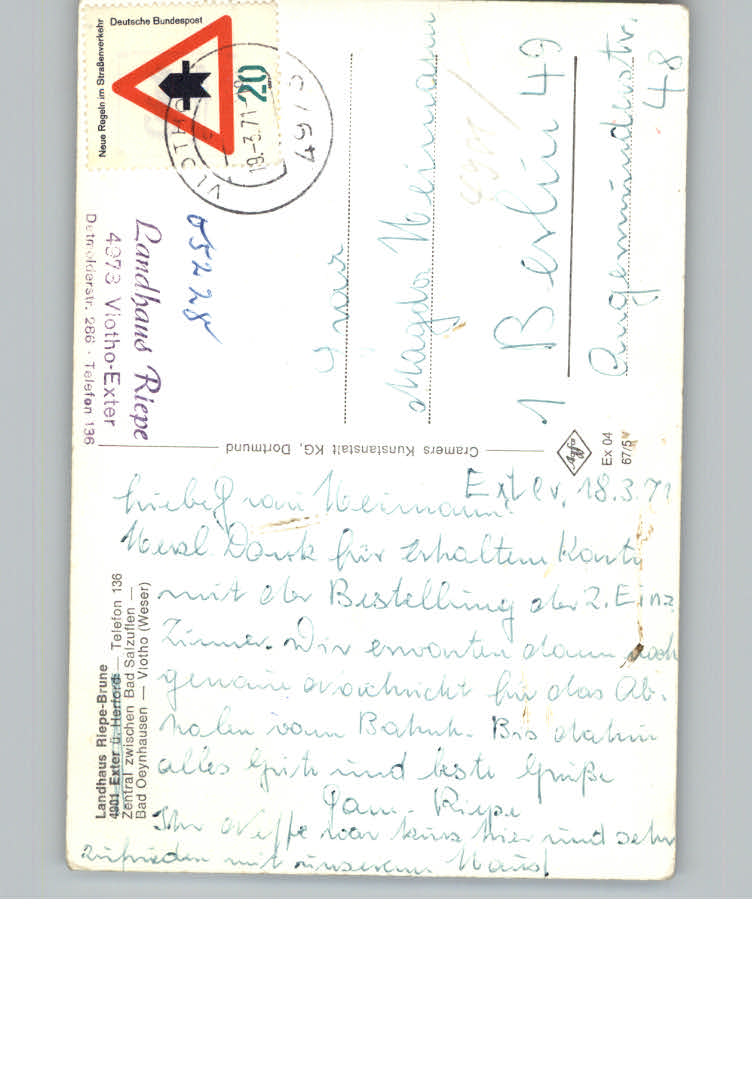 Landhaus Riepe-Brune
4901 Exter ü. Herford — Telefon 136
Zentral zwischen Bad Salzuflen —
Bad Oeynhausen — Vlotho (Weser)
Exter, 18.3.71
Liebe Frau Heimann!
Herzl. Dank für erhaltene Karte
mit der Bestellung der 2. Einz
Zimmer. Wir erwarten dann noch
genaue Nachricht für das Ab-
holen vom Bahnh. Bis dahin
alles Gute und beste Grüße
Fam. Riepe
Ihr Neffe war kurz hier und sehr
zufrieden mit unserem Haus!
Cramers Kunstanstalt KG, Dortmund
Landhaus Riepe
4973 Vlotho-Exter
Detmolderstr. 286 · Telefon 136
05228
Neue Regeln im Straßenverkehr
Deutsche Bundespost
20
VLOTHO
19.-3.71
4973
Frau
Magda Heimann
1 Berlin 49
Angermünderstr.
48
Agfa
Ex 04
67/5